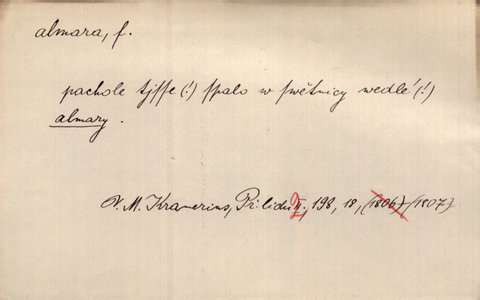 almara, f.
pachole tjsse (!) spalo w swětnicy wedlé (!)
almary.
V. M. Kramerius, Př. lidu II., 198, 18, (1806) (1807)